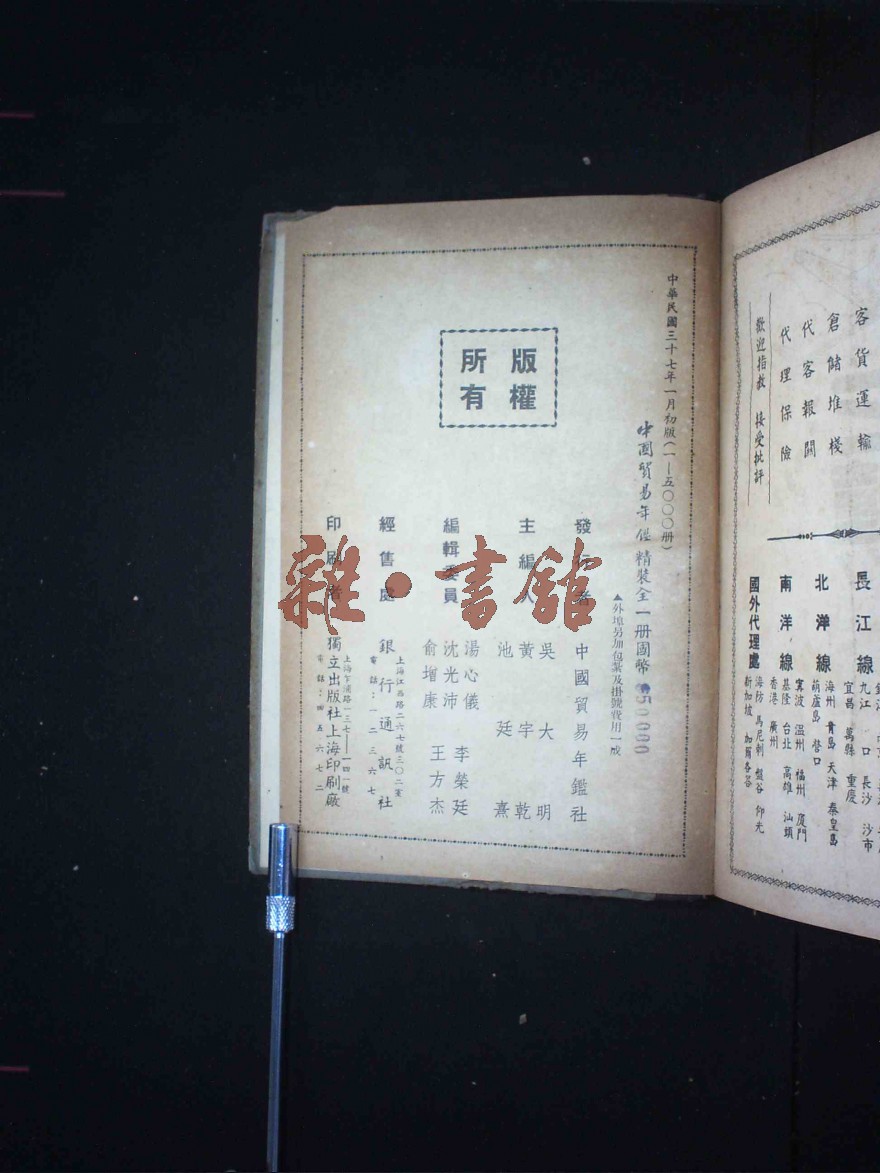 客貨運輸
倉儲堆棧
代客報關
代理保險
歡迎指教 接受批評
長江線
九江 口 長沙 沙市
宜昌 萬縣 重慶
北洋線
海州 青島 天津 秦皇島
葫蘆島 營口
南洋線
寗波 溫州 福州 廈門
基隆 台北 高雄 汕頭
香港 廣州
國外代理處
海防 馬尼剌 盤谷 仰光
新加坡 加爾各答
中華民國三十七年一月初版(一—五〇〇〇册)
中國貿易年鑑 精裝全一册國幣
▲外埠另加包紮及掛號費用一成
版權
所有
發行者 中國貿易年鑑社
主編人 吳大明
黃宇乾
池廷熹
編輯委員 湯心儀 李榮廷
沈光沛 王方杰
俞增康
經售處 銀行通訊社
上海江西路二六七號三〇二室
電話:一二三六七
印刷者 獨立出版社上海印刷廠
上海乍浦路一三七——一四一號
電話:四五六七二
雜·書館